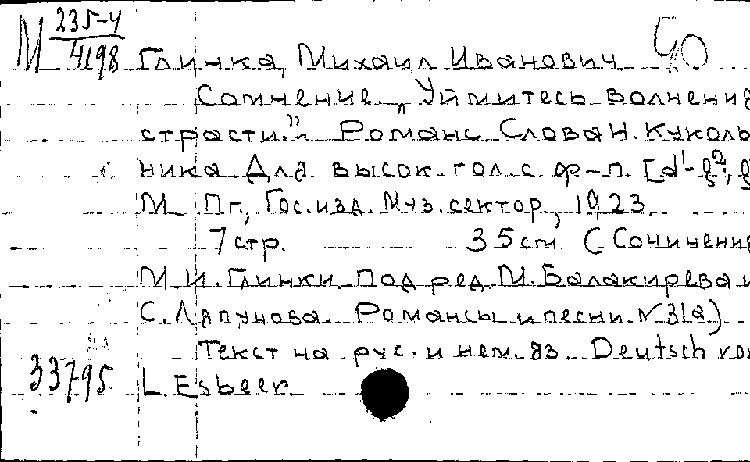 М 235-4
4198 Глинка, Михаил Иванович 50
Сомнение „Уймитесь волнения
страсти." Романс Слова Н. Куколь-
ника Для высок. гол. с ф-п. [d¹-
М. Пг., Гос. изд. Муз. сектор, 1923
7 стр. 35 cm (Сочинение
М. И. Глинки под ред. М. Балакирева и
С. Ляпунова. Романсы и песни. № 31а)
Текст на рус. и нем. яз. Deutsch von
33795 L. Esbeer